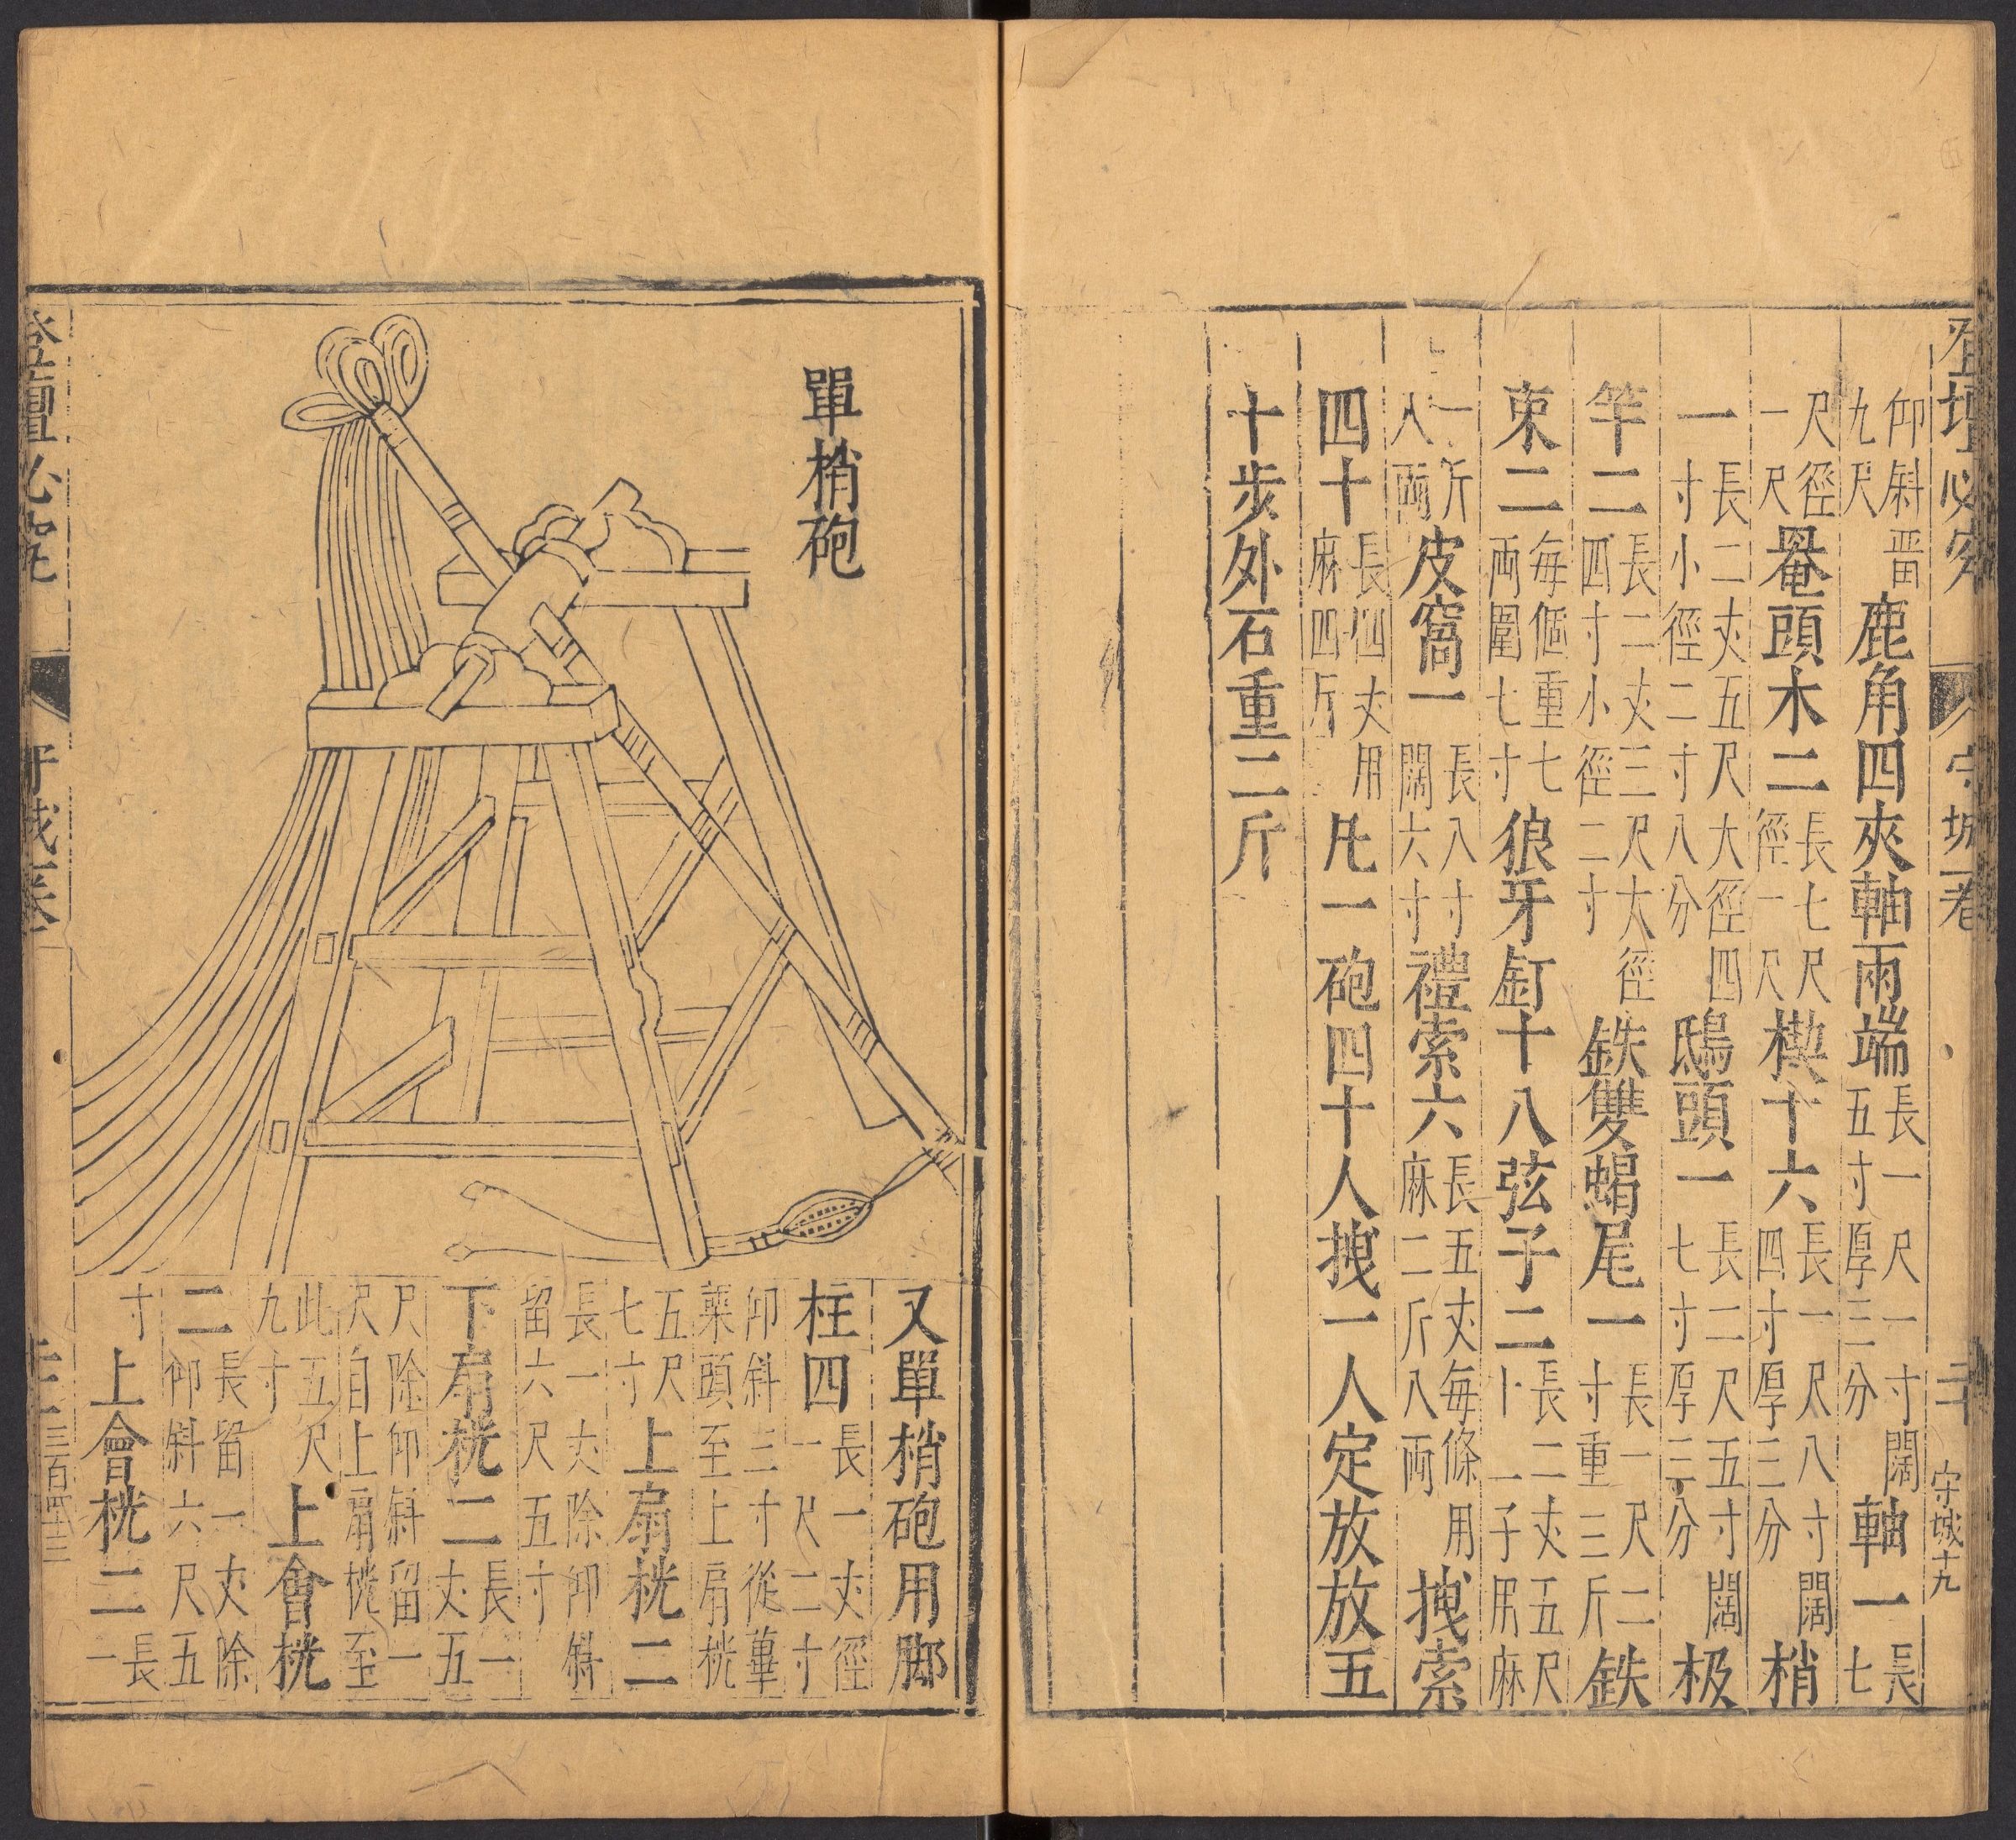 登壇必究 守城一卷 二十 守城十九
仰斜晋九尺鹿角四夾軸兩端長一尺一寸闊五寸厚三分軸一長七
尺徑一尺罨頭木二長七尺徑一尺楔十六長一尺八寸闊四寸厚三分梢
一長二丈五尺大徑四寸小徑二寸八分鴟頭一長二尺五寸闊七寸厚三分极
竿二長二丈三尺大徑四寸小徑二寸鉄雙蝎尾一長一尺二寸重三斤鉄
束二每個重七兩圍七寸狼牙釘十八弦子二長二丈五尺十二子尻麻
一斤八兩皮窩一長八寸闊六寸禮索六長五丈每條用麻二斤八兩拽索
四十長四丈用麻四斤凡一砲四十人拽一人定放放五
十步外石重二斤
單梢砲
又單梢砲用脚
柱四長一丈徑一尺二寸
仰斜三寸從華藥頭至上扇桄
五尺七寸上扇桄二
長一丈除仰斜留六尺五寸
下扇桄二長一丈五
尺除仰斜留一尺自上扇桄至
此五尺九寸上會桄
二長留一丈除仰斜六尺五
寸上會桄二長一
登壇必究 守城一卷 三百四十三